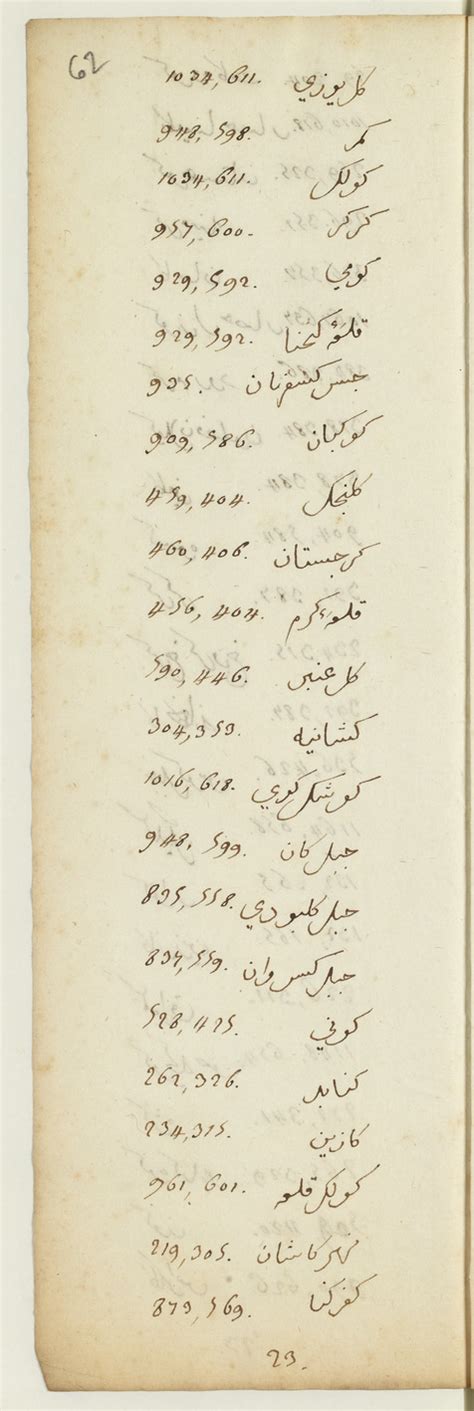 62
كل يوزي 1034, 611.
كمر 948, 598.
كولك 1034, 611.
كركر 957, 600.
كومي 929, 592.
قلعهٔ كخنا 929, 592.
935.
كوكبان 909, 586.
كلنجك 459, 404.
كرجستان 460, 406.
كرم 456, 404.
كل عنبر 590, 446.
كشانيه 304, 353.
كوشك كوي 1016, 618.
جبل كان 948, 599.
جبل كلبودي 835, 558.
جبل كسروان 837, 559.
كوني 528, 425.
كنابد 262, 326.
كازين 234, 315.
كولك قلعه 961, 601.
نهر كاشان 219, 305.
كفركنا 873, 569.
23.